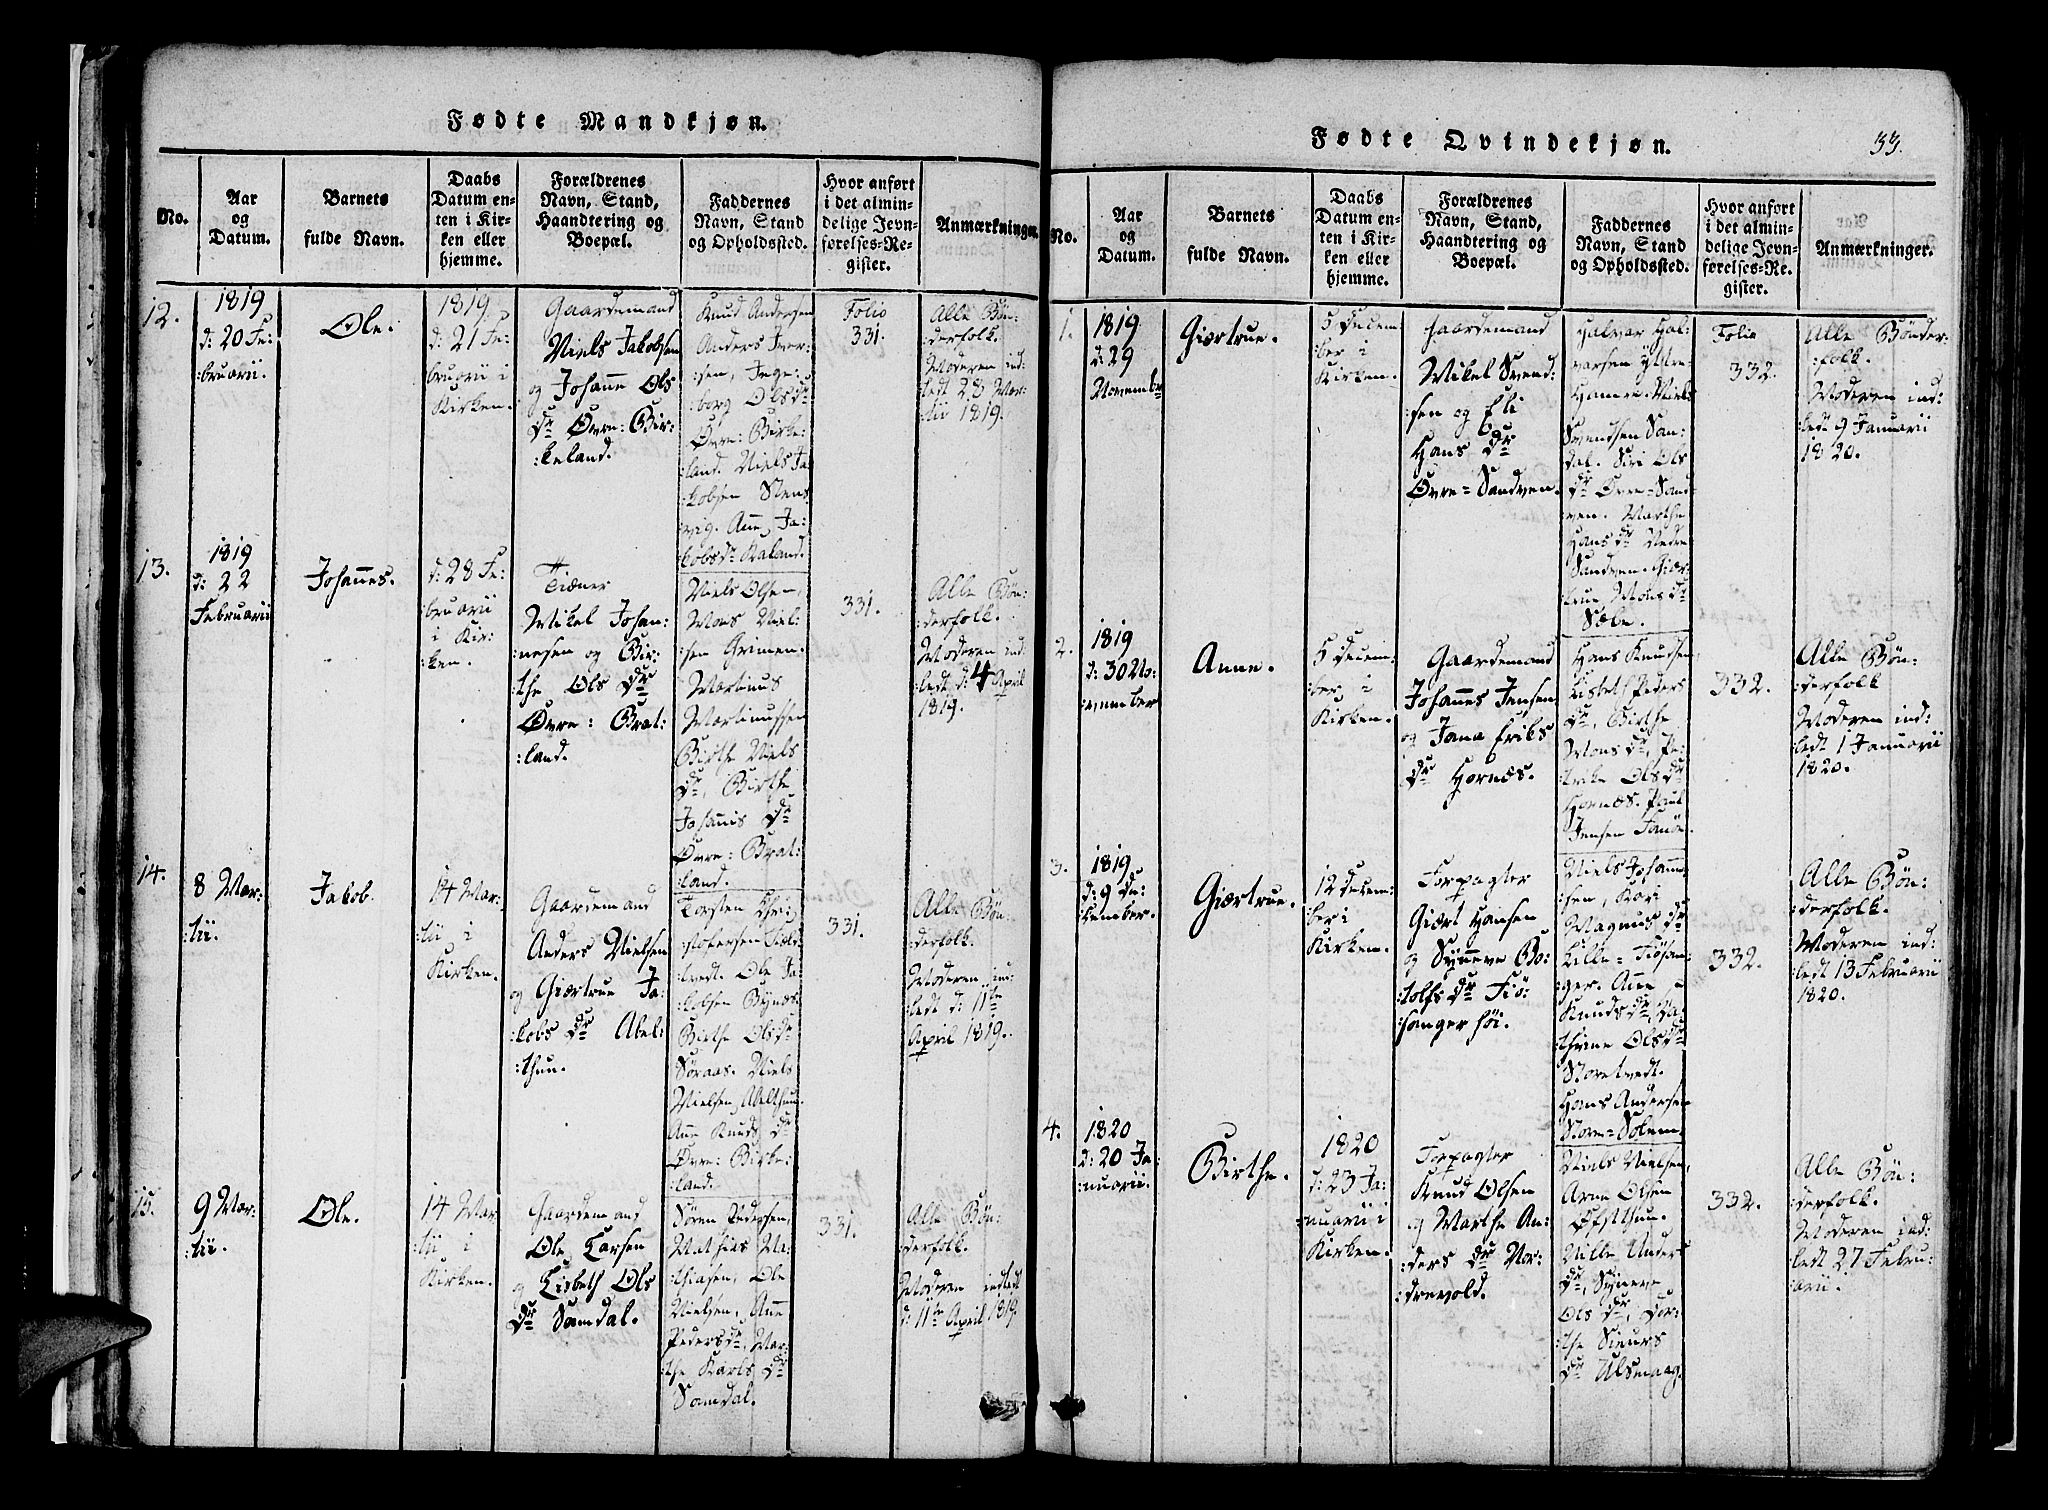 Fødte Mandkjøn.
No.
Aar
og
Datum.
Barnets
fulde Navn.
Daabs
Datum en-
ten i Kir-
ken eller
hjemme.
Forældrenes
Navn, Stand,
Haandtering og
Boepæl.
Faddernes
Navn, Stand
og Opholdssted.
Hvor anført
i det almin-
delige Jevn-
førelses-Re-
gister.
Anmærkninger.
12.
1819
d: 20 Fe:
:bruarii.
Ole.
1819.
d: 21 Fe:
bruarii i
Kirken.
Gaardemand
Niels Jakobsen
og Johanne Ols
Dr Øvre: Bir:
:keland.
Knud Andersen
Anders Iver:
:sen, Inge:
:borg Olsdr
Øvre: Birke:
:land. Niels Ja:
:kobsen Stens
vig. Anne Ja:
kobsdr Kaland.
Folio
331.
Alle Bøn:
:derfolk.
Moderen ind:
ledt 28 Mar:
tii 1819.
13.
1819
d: 22
Februarii
Johannes.
d: 28 Fe:
bruarii
i Kir:
ken.
Tiæner
Mikel Johan:
:nesen og Bir:
:the Ols Dr
Øvre: Brat:
:land.
Niels Olsen,
Mons Niel:
sen Grimen.
Martinus
Martinussen
Birthe Niels
Dr, Birthe
Johannis Dr
Øvre: Brat:
:land.
331.
Alle Bøn:
:derfolk.
Moderen ind:
:ledt d: 4 April
1819.
14.
8 Mar:
:tii.
Jakob.
14 Mar:
:tii i
Kirken.
Gaardemand
Anders Nielsen
og Giørtrue Ja:
:kobs Dr Abel:
:thun.
Torsten Chri:
:stofersen Tvedt. Ole Ja:
:kobsen Bynæs.
Birthe Olsdr
Søraas. Niels
Nielsen, Abelthun.
Anne Knuds Dr
Øvre: Birke:
:land.
331.
Alle Bøn:
:derfolk.
Moderen in:
:ledt d: 11te
April 1819.
15.
9 Mar:
:tii.
Ole.
14 Mar
:tii i
Kirken.
Gaardemand
Ole Larsen
og Lisbeth Ols
Dr Samdal.
Søren Pedersen,
Mathias Ma:
:thiasen, Ole
Nielsen, Anne
Pedersdr, Mar:
:the Karls Dr
Samdal.
331.
Alle Bøn:
:derfolk.
Moderen indledt
d: 11te April 1819.
Fødte Qvindekjøn.
33.
No.
Aar
og
Datum.
Barnets
fulde Navn.
Daabs
Datum en-
ten i Kir-
ken eller
hjemme.
Forældrenes
Navn, Stand,
Haandtering og
Boepæl.
Faddernes
Navn, Stand
og Opholdssted.
Hvor anført
i det almin-
delige Jevn-
førelses-Re-
gister.
Anmærkninger.
1.
1819
d: 29
Novembr
Giørtrue.
5 Decem:
:ber i
Kirken.
Gaardemand
Mikel Svend:
:sen og Eli
Hans Dr
Øvre=Sandven.
Halvar Hal:
varsen Yttre
Hamre. Niels
Svendsen San:
dal. Siri Ols
Dr Øvre=Sand
ven. Marthe
Hansdr Nedre
Sandven. Giør:
true Monsdr
Sæbe.
Folio
332.
Alle Bønder:
:folk.
Moderen ind:
ledt 9 Januarii
1820.
2.
1819
d: 30 No:
:vember
Anne.
5 Decem:
ber, i
Kirken.
Gaardemand
Johannes Jensen
og Jana Eriks
Dr Hornæs.
Hans Knudsen,
Lisbet Peders
Dr, Birthe
Mons Dr, Pe:
:trike Olsdr
Hornæs. Paul
Jensen Fanøe.
332.
Alle Bøn:
:derfolk
Moderen ind:
:ledt 1 Januarii
1820.
3.
1819
d: 9 De:
:cember.
Giørtrue.
12 Decem:
:ber i
Kirken.
Forpagter
Giært Hansen
og Synneve Bo:
:tolfs Dr Fiø:
:sanger høi.
Niels Johanne:
sen, Kari
Magnus Dr
Lille=Fiøsan:
ger. Anne
Knudsdr, Ka:
:thrine Olsdr
Storetvedt.
Hans Andersen
Store=Solem.
332.
Alle Bøn:
:derfolk.
Moderen ind:
ledt 13 Februarii
1820.
4.
1820
d: 20 Ja:
:nuarii.
Birthe.
1820
d: 23 Ja:
:nuarii i
Kirken.
Forpagter
Knud Olsen
og Marthe An:
:ders Dr Nor:
:drevold.
Niels Nielsen,
Arne Olsen
Øfstthun.
Nille Anders
Dr, Synneve
Ols Dr, Dor:
:the Siurs
Dr Ulsmaag.
332.
Alle Bøn:
derfolk.
Moderen ind:
ledt 27 Febru:
arii.